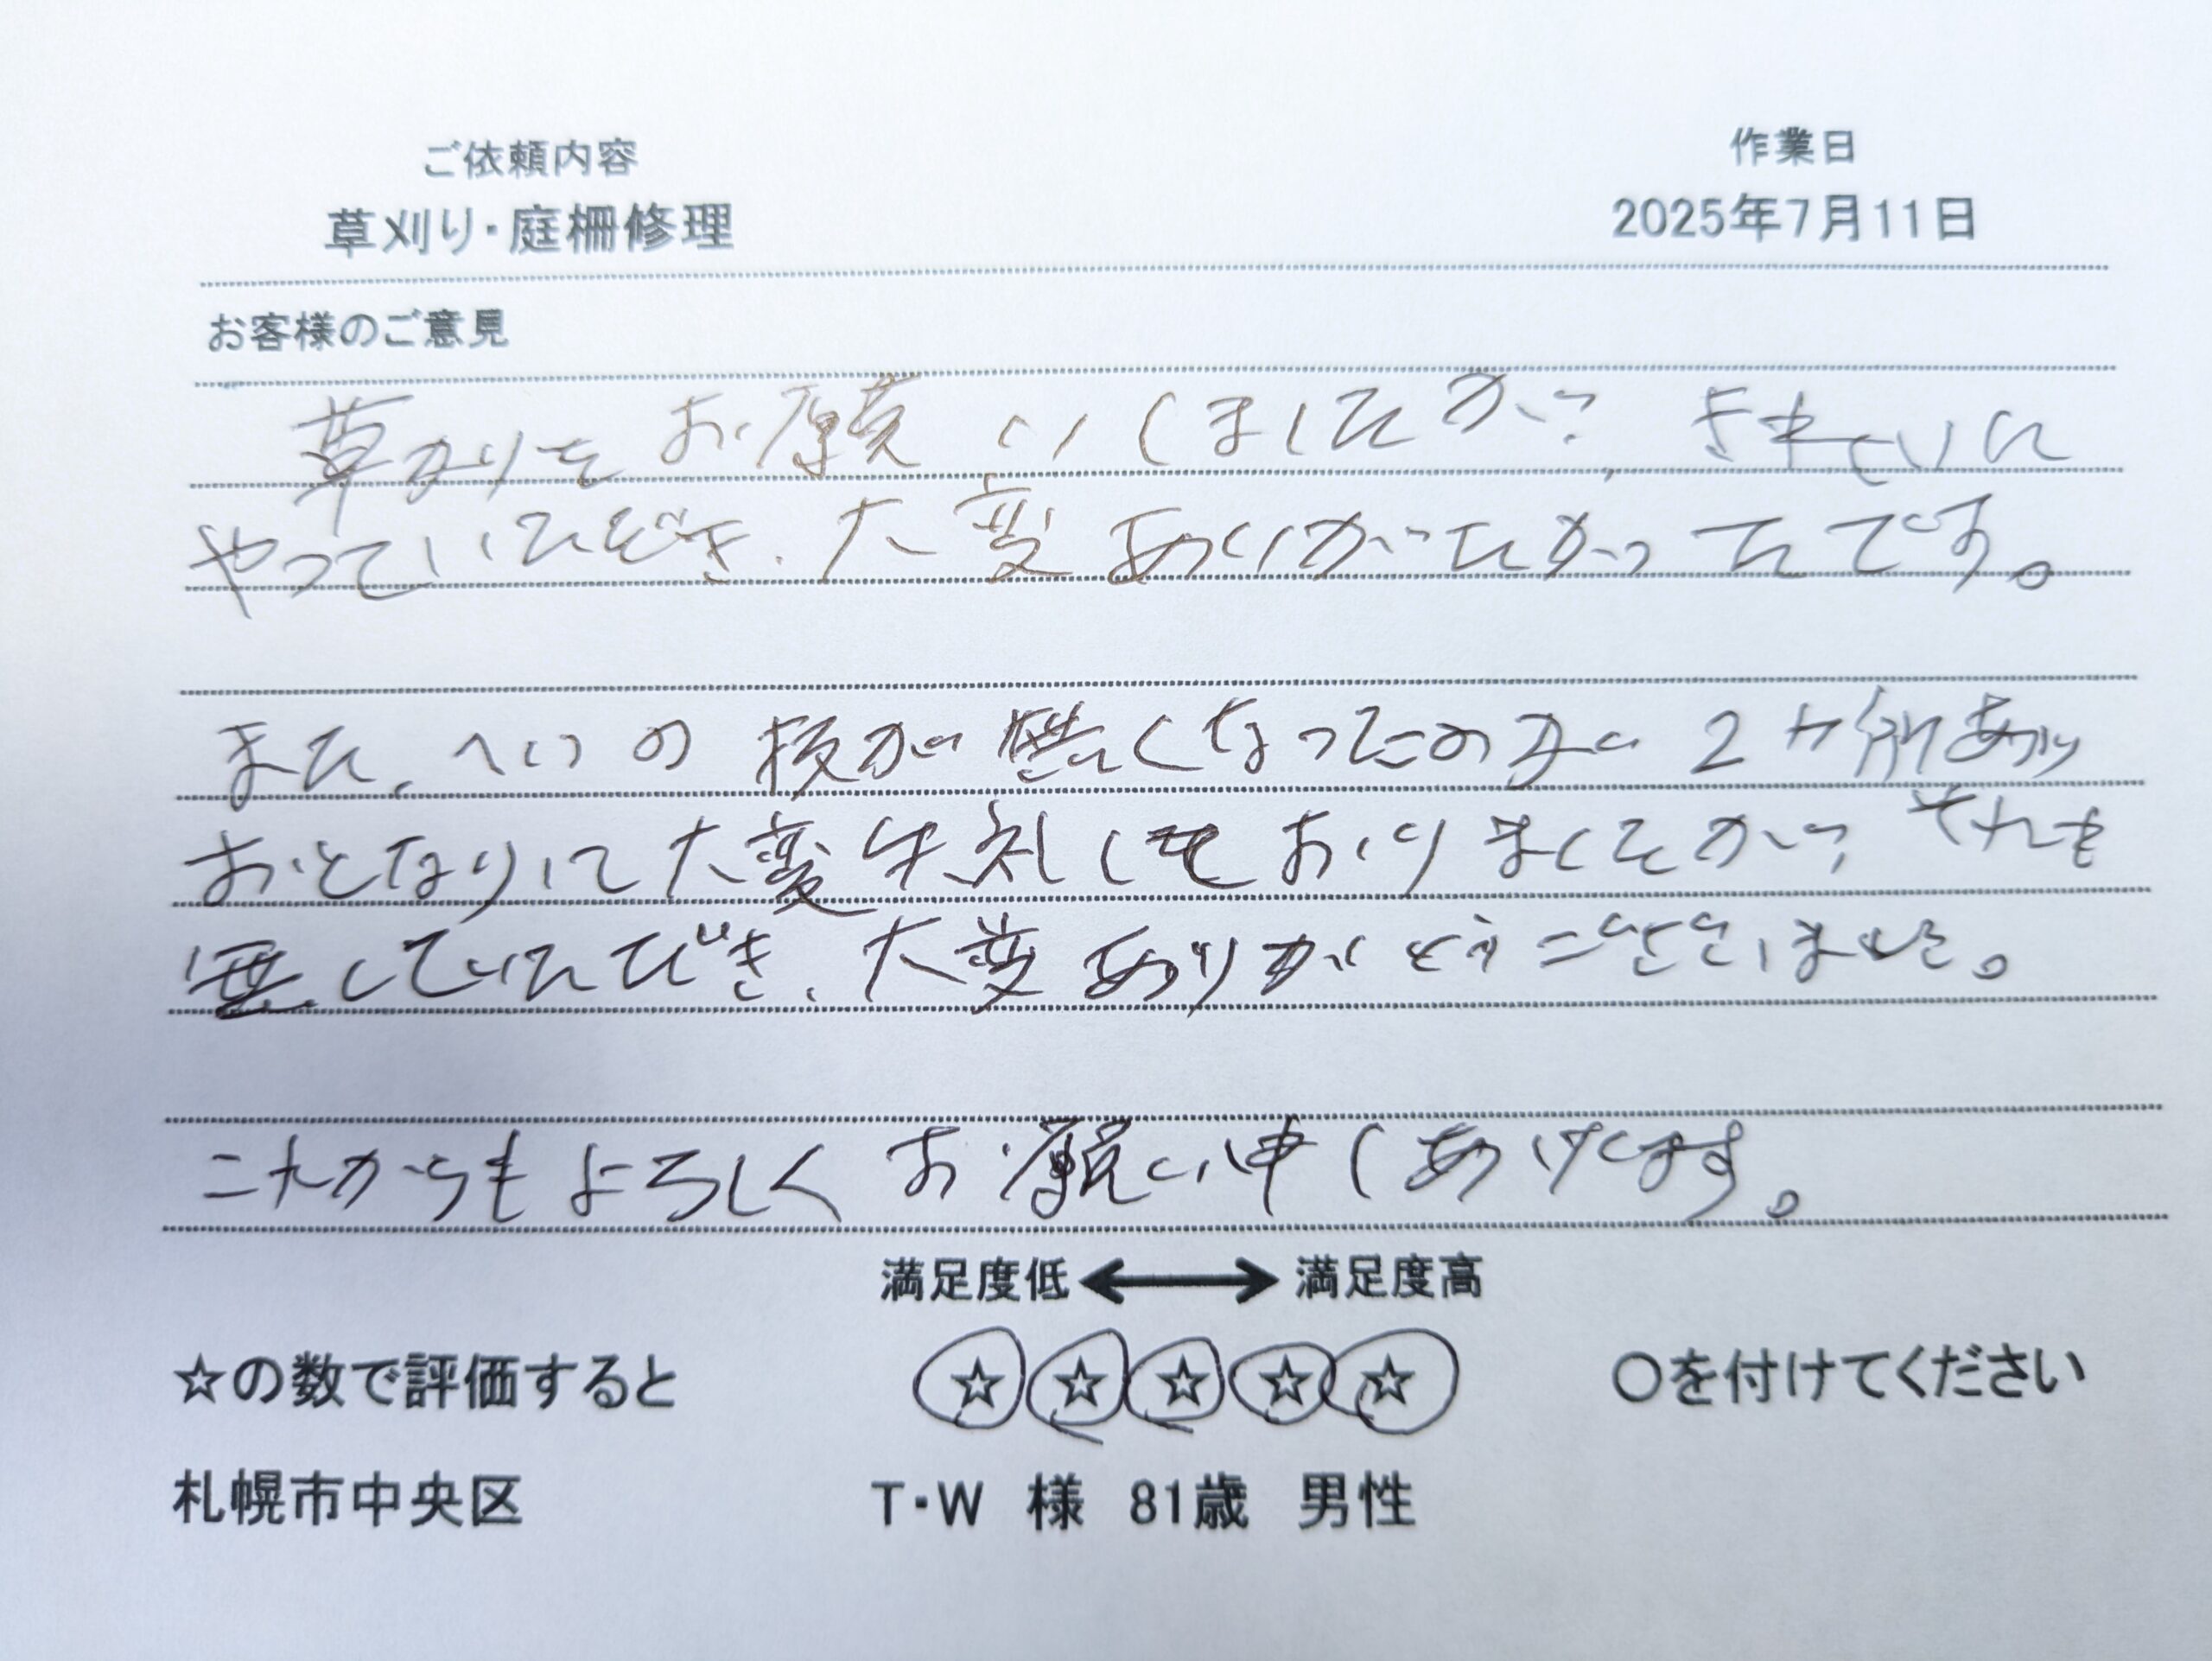 ご依頼内容
作業日
草刈り・庭柵修理
2025年7月11日
お客様のご意見
草かりをお願いしましたが、きれいに
やっていただき、大変ありがたかったです。
また、へいの板が無くなったのが2ヶ所あり
おとなりに大変失礼しておりましたが、それも
無していただき、大変ありがとうございました。
これからもよろしくお願い申しあげます。
満足度低 満足度高
☆の数で評価すると ☆☆☆☆☆ 〇を付けてください
札幌市中央区 T・W 様 81歳 男性